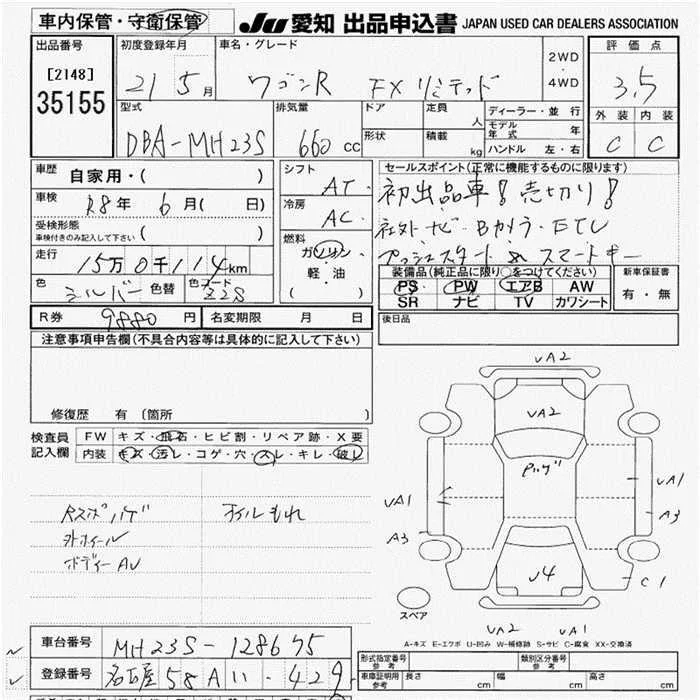 車内保管・守衛保管
JU 愛知 出品申込書 JAPAN USED CAR DEALERS ASSOCIATION
出品番号 初度登録年月 車名・グレード 2WD ・ 4WD 評価点
[2148] 35155 21 5月 ワゴンR FXリミテッド 3.5
型式 排気量 ドア 定員 人 ディーラー・並行 外装 内装
DBA-MH23S 660cc 形状 積載 kg モデル年式 年 C C
ハンドル 左・右
車歴 自家用・( ) シフト AT セールスポイント(正常に機能するものに限ります)
車検 R8年 6月( 日) 冷房 AC 初出品車!売切り!
受検形態 車検付きのみ記入して下さい ( ) 燃料 ガソリン・軽・油 ( ) 社外ナビ・Bカメラ・ETC
走行 15万0千114km プッシュスタート スマートキー
色 シルバー 色替 色コード Z2S 装備品(純正品に限り○をつけてください) 新車保証書
PS PW エアB AW 有・無
SR ナビ TV カワシート
R券 9880円 名変期限 月 日 後日品
注意事項申告欄(不具合内容等は具体的に記入して下さい)
修復歴 有(箇所 )
検査員記入欄 FW キズ・飛石・ヒビ割・リペア跡・X要
内装 キズ・汚レ・コゲ・穴・スレ・キレ・破レ
Rスポハゲ オイルもれ
外ホイール
ボディーAU
UA2
UA2
Pハゲ
UA1 UA1
A3 A3
U4 C1
スペア
UA2 UA1
A-キズ E-エクボ U-凹み W-補修跡 S-サビ C-腐食 XX-交換済
車台番号 MH23S-128675
登録番号 名古屋 58A い・429
形式指定番号 参考 類別区分番号 参考
車庫証明用 参考 長さ cm 幅 cm 高さ cm